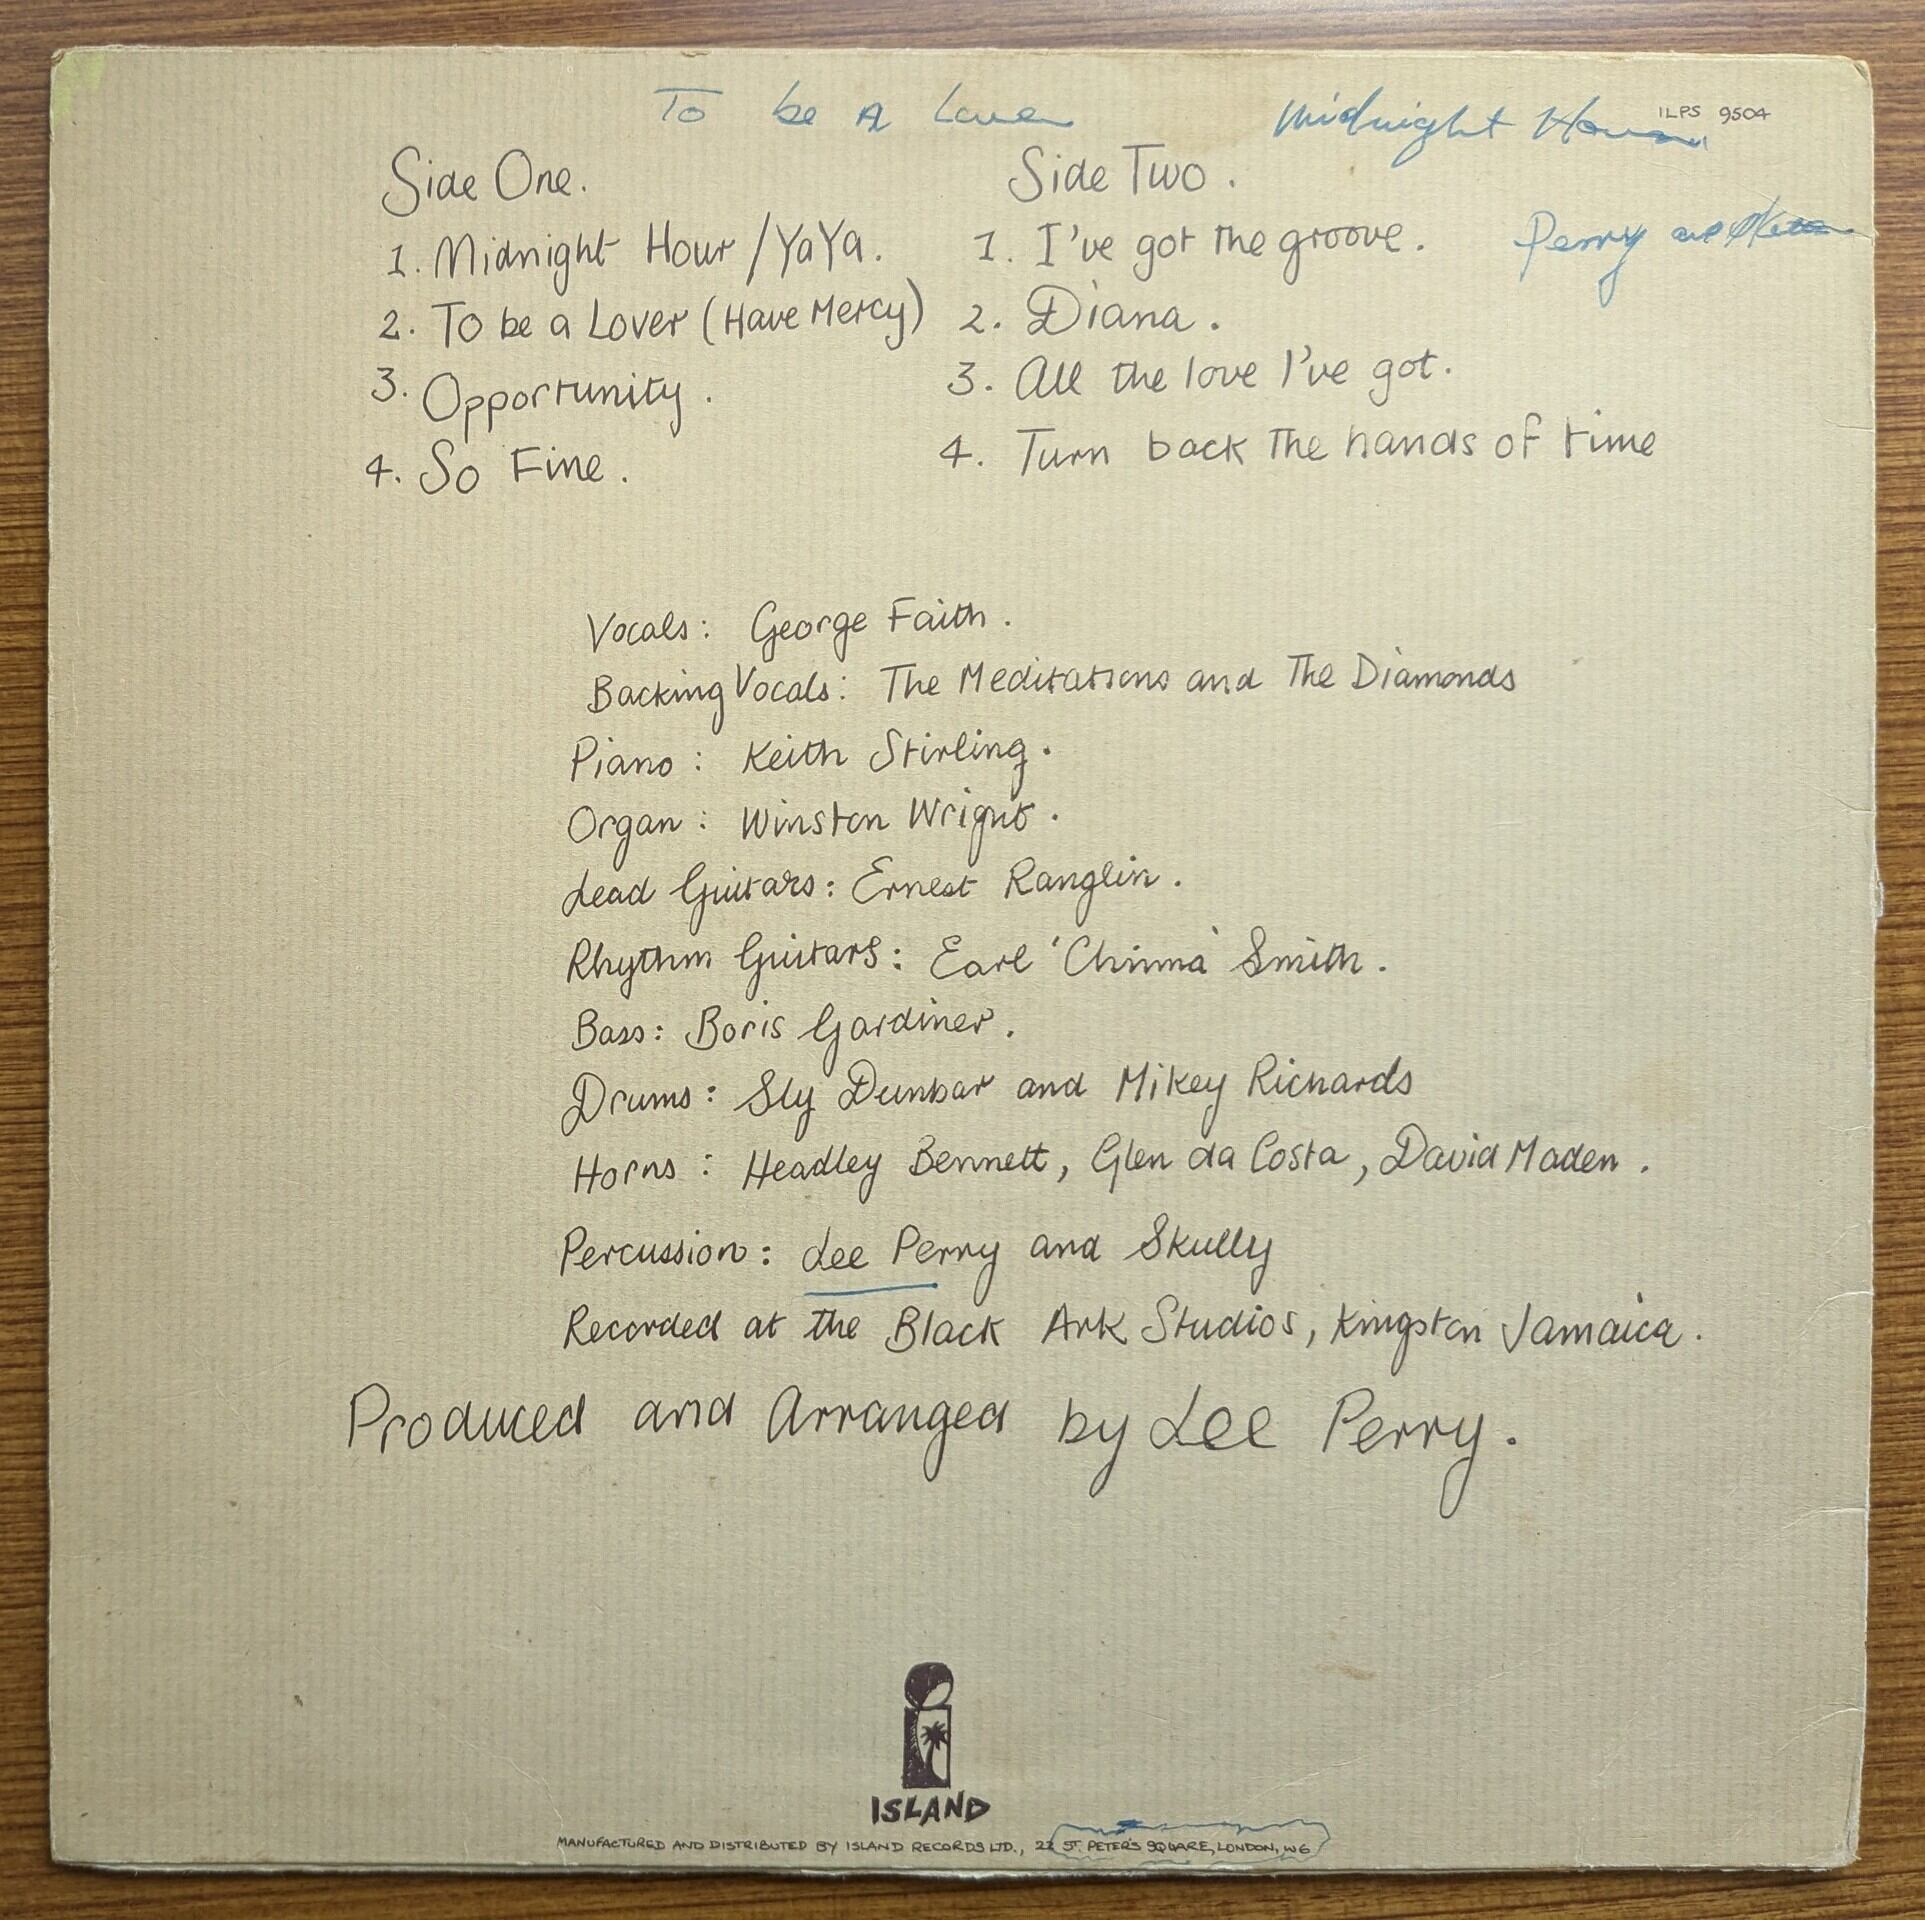 To be A Lover
Midnight Hour
ILPS 9504
Side One.
1. Midnight Hour / YaYa.
2. To be a Lover (Have Mercy)
3. Opportunity.
4. So Fine.
Side Two.
1. I've got the groove.
Perry
2. Diana.
3. All the love I've got.
4. Turn back the hands of time
Vocals: George Faith.
Backing Vocals: The Meditations and The Diamonds
Piano: Keith Stirling.
Organ: Winston Wright.
Lead Guitars: Ernest Ranglin.
Rhythm Guitars: Earl 'Chinna' Smith.
Bass: Boris Gardiner.
Drums: Sly Dunbar and Mikey Richards
Horns: Headley Bennett, Glen da Costa, David Maden.
Percussion: Lee Perry and Skully
Recorded at the Black Ark Studios, Kingston Jamaica.
Produced and Arranged by Lee Perry.
ISLAND
MANUFACTURED AND DISTRIBUTED BY ISLAND RECORDS LTD., 22 ST. PETER'S SQUARE, LONDON, W6